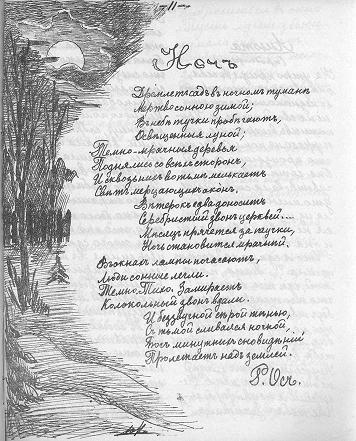 -11-
Ночь
Дремлетъ садъ въ ночномъ туманѣ
Мертво-сонною зимой;
Въ небѣ тучки пробѣгаютъ,
Освѣщенныя луной;
Темно-мрачныя деревья
Поднялись со всѣхъ сторонъ,
И сквозь нихъ во тьмѣ мелькаетъ
Свѣтъ мерцающихъ оконъ.
Вѣтерокъ едва доноситъ
Серебристый звонъ церквей...
Мѣсяцъ прячется за тучки,
Ночь становится мрачнѣй.
Въ окнахъ лампы погасаютъ,
Люди сонные легли.
Темно. Тихо. Замираетъ
Колокольный звонъ вдали.
И беззвучной сѣрой тѣнью,
Съ тьмой сливаяся ночной,
Богъ минутныхъ сновидѣній
Пролетаетъ надъ землей.
Р.